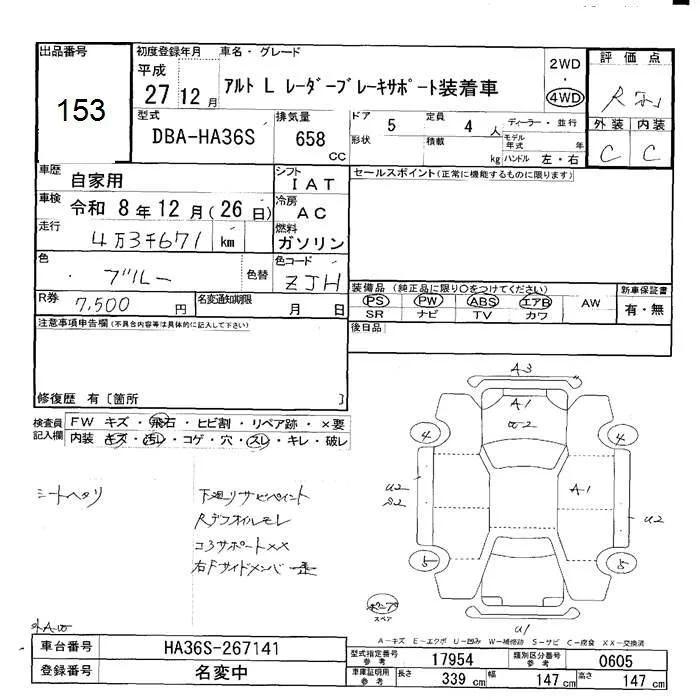 出品番号
153
初度登録年月
平成
27 12月
車名・グレード
アルト L レーダーブレーキサポート装着車
2WD
・
4WD
評価点
R
外装 内装
C C
型式
DBA-HA36S
排気量
658
CC
ドア
5
定員
4人
形状
積載
kg
ディーラー・並行
モデル年式
年
ハンドル 左・右
車歴
自家用
シフト
IAT
セールスポイント(正常に機能するものに限ります)
車検
令和 8年12月(26日)
冷房
AC
走行
4万3千671 km
燃料
ガソリン
色
ブルー
色替
色コード
ZJH
装備品 (純正品に限り○をつけてください)
PS PW ABS エアB AW
SR ナビ TV カワ
新車保証書
有・無
R券
7,500 円
名変通知期限
月 日
後日品
注意事項申告欄(不具合内容等は具体的に記入して下さい)
修復歴 有〔箇所 〕
検査員記入欄
FW キズ・飛石・ヒビ割・リペア跡・×要
内装 キズ・汚レ・コゲ・穴・スレ・キレ・破レ
シートヘタリ
下廻りサビペイント
Rデフオイルモレ
コアサポート××
右Fサイドメンバー
A3
A1
U2
4
4
A1
U2
S2
U2
5
5
U1
ポンプ
スペア
A-キズ E-エクボ U-凹み W-補修跡 S-サビ C-腐食 XX-交換済
車台番号
HA36S-267141
登録番号
名変中
型式指定番号
参考
17954
類別区分番号
参考
0605
車庫証明用
参考
長さ
339 cm
幅
147 cm
高さ
147 cm